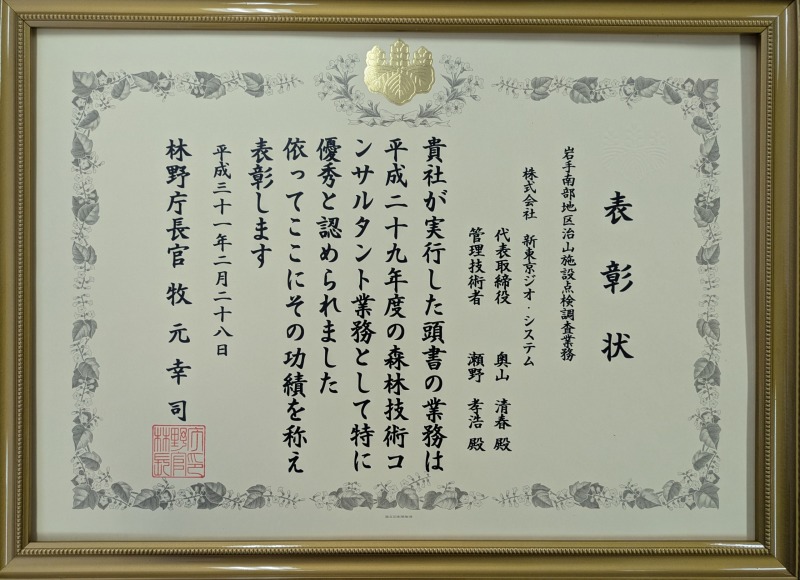 表彰状
岩手南部地区治山施設点検調査業務
株式会社 新東京ジオ・システム
代表取締役 奥山 清春 殿
管理技術者 瀬野 孝浩 殿
貴社が実行した頭書の業務は
平成二十九年度の森林技術コ
ンサルタント業務として特に
優秀と認められました
依ってここにその功績を称え
表彰します
平成三十一年二月二十八日
林野庁長官 牧元幸司